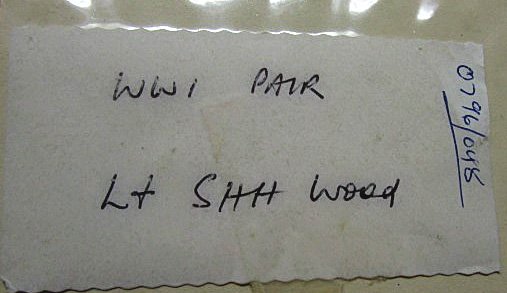 WW1 PAIR
Lt SHH Wood
0796/048